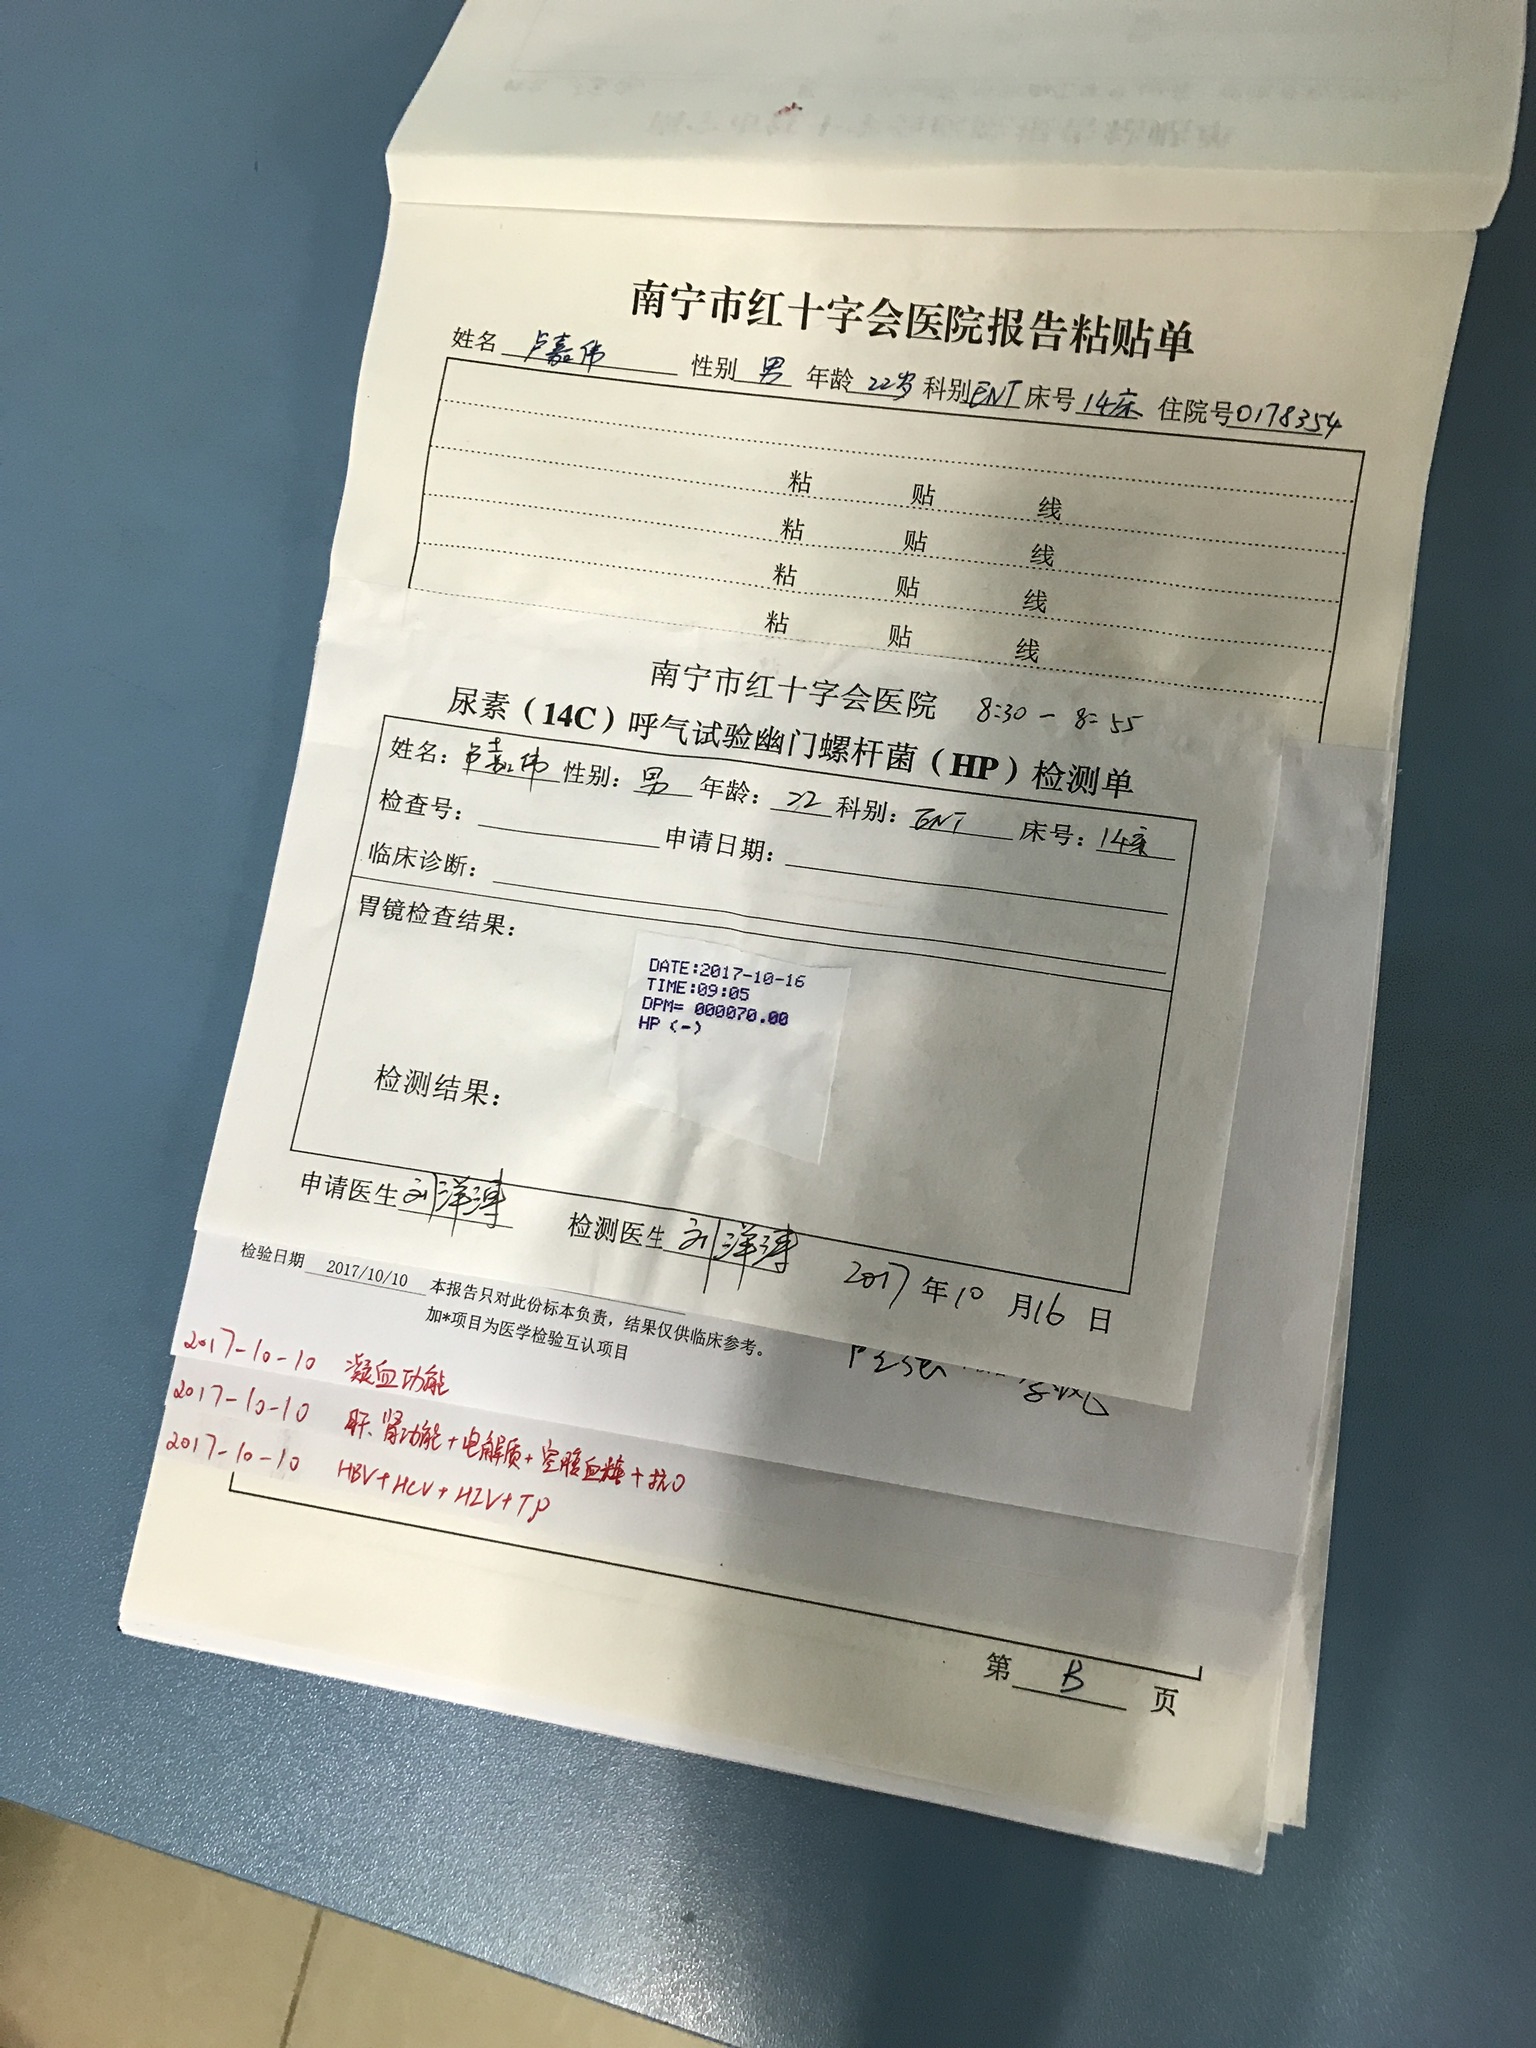 南宁市红十字会医院报告粘贴单
姓名 卢嘉伟 性别 男 年龄 22岁 科别 ENT 床号 14床 住院号 0178354
粘 贴 线
粘 贴 线
粘 贴 线
粘 贴 线
南宁市红十字会医院 8:30-8:55
尿素（14C）呼气试验幽门螺杆菌（HP）检测单
姓名：卢嘉伟 性别：男 年龄：22 科别：ENT 床号：14床
检查号： 申请日期：
临床诊断：
胃镜检查结果：
DATE:2017-10-16
TIME:09:05
DPM= 000070.00
HP (-)
检测结果：
申请医生 刘洋涛 检测医生 刘洋涛 2017年10月16日
检验日期 2017/10/10 本报告只对此份标本负责，结果仅供临床参考。
加*项目为医学检验互认项目
2017-10-10 凝血功能
2017-10-10 肝、肾功能+电解质+空腹血糖+抗O
2017-10-10 HBV+HCV+HIV+TP
第 B 页